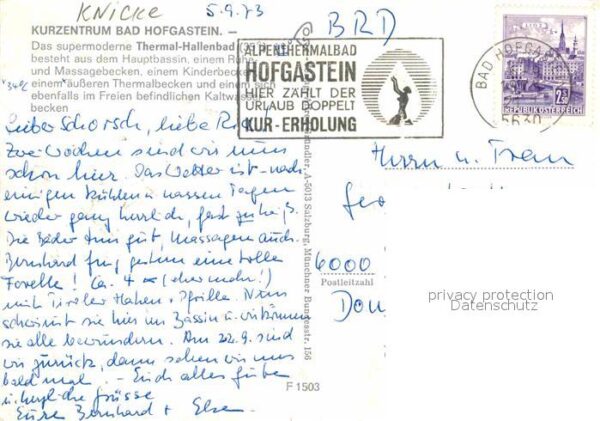 KNICKE 5.9.73 BRD
KURZENTRUM BAD HOFGASTEIN. —
Das supermoderne Thermal-Hallenbad
besteht aus dem Hauptbassin, einem Ruhe-
und Massagebecken, einem Kinderbecken
einem äußeren Thermalbecken und einem
ebenfalls im Freien befindlichen Kaltwasser-
becken
ALPENTHERMALBAD
HOFGASTEIN
HIER ZAHLT DER
URLAUB DOPPELT
KUR-ERHOLUNG
BAD HOFGA
5630
LINZ
REPUBLIK ÖSTERREICH
Lieber Schorsch, liebe
zwei Wochen sind wir nun
schon hier. Das Wetter ist nach
einigen kühlen u nassen Tagen
wieder ganz herrlich, fast zu heiß.
Die Bäder tun gut, Massagen auch.
Bernhard fing gestern eine tolle
Forelle! Ca. 4 (eher mehr!)
mit Tiroler Haken, Pfrille. Nun
schwimmt sie hier im Bassin u wir können
sie alle bewundern. Am 22.9. sind
wir zurück, dann sehen wir uns
bald mal. - Euch alles Gute
u. herzliche Grüsse
Eure Bernhard + Else
Herrn u. Frau
Geo
6000
Postleitzahl
Don
A-5013 Salzburg, Münchner Bundesstr. 156
F 1503
privacy protection
Datenschutz